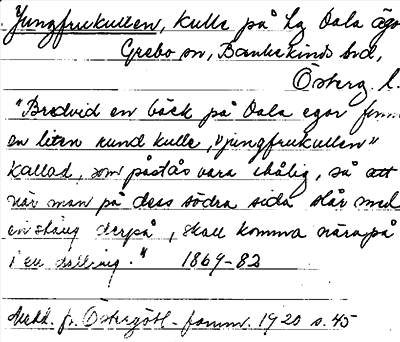 Jungfrukullen, kulle på Lg Dala ägo
Grebo sn, Bankekinds hd,
Österg. l.
"Bredvid en bäck på Dala egor finn
en liten rund kulle, "jungfrukullen"
kallad, som påstås vara ihålig, så att
när man på dess södra sida slår med
en stång derpå, skall komma nära på
i en dallring." 1869-82
Medd. fr. Östergötl. fornm. 1920 s. 45